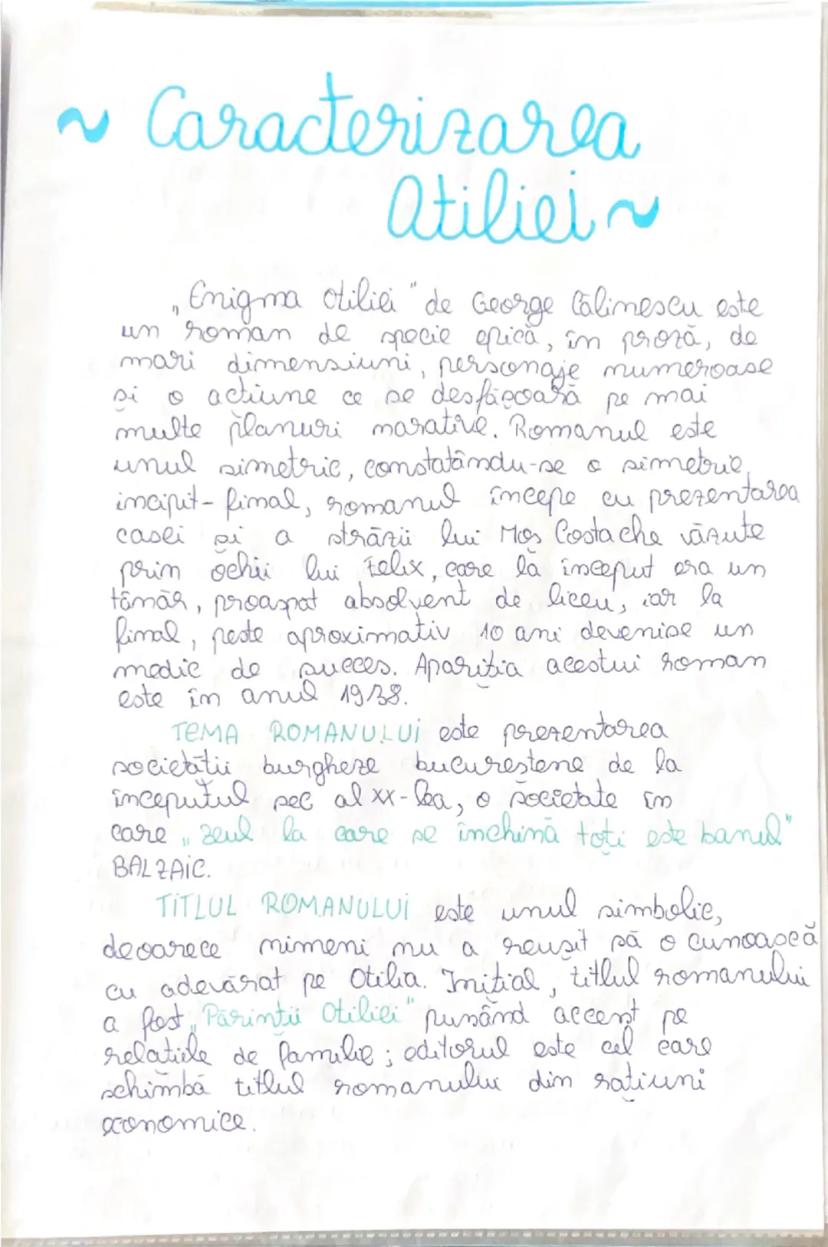 ~ Caracterizarea
Otiliei ~
„Enigma Otiliei" de George Călinescu este
un roman de specie epică, în proză, de
mari dimensiuni, personaje numeroase
și o acțiune ce se desfășoară pe mai
multe planuri narative. Romanul este
unul simetric, constatându-se o simetrie
incipit-final, romanul începe cu prezentarea
casei și a străzii lui Moș Costache văzute
prin ochii lui Felix, care la început era un
tânăr, proaspăt absolvent de liceu, iar la
final, peste aproximativ 10 ani devenise un
medic de succes. Apariția acestui roman
este în anul 1938.
TEMA ROMANULUI este prezentarea
societății burgheze bucureștene de la
începutul sec al XX-lea, o societate în
care „zeul la care se închină toți este banul"
BALZAIC.
TITLUL ROMANULUI este unul simbolic,
deoarece nimeni nu a reușit să o cunoască
cu adevărat pe Otilia. Inițial, titlul romanului
a fost „Părinții Otiliei" punând accent pe
relațiile de familie; editorul este cel care
schimbă titlul romanului din rațiuni
economice.